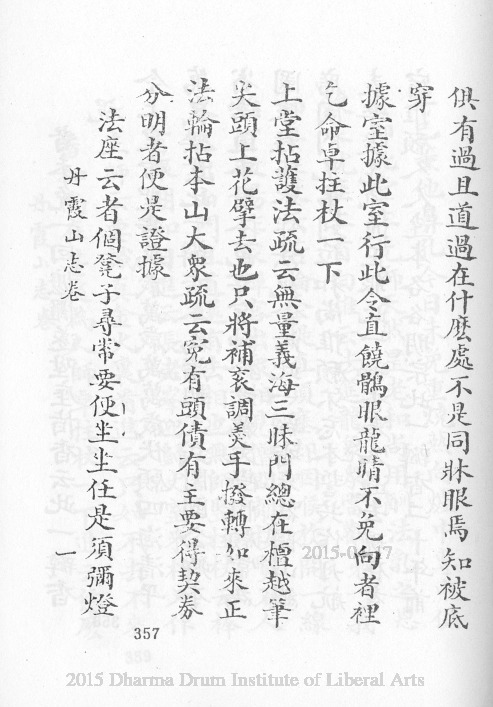 俱有過且道過在什麽處不是同牀眼焉知被底
穿
據室據此室行此令直饒鶻眼龍睛不免向者裡
乞命卓拄杖一下
上堂拈護法疏云無量義海三昧門總在檀越筆
尖頭上花擘去也只將補衮調羹手撥轉如來正
法輪拈本山大衆疏云寃有頭債有主要得契券
分明者便是證據
法座云者個凳子尋常要便坐坐任是須彌燈
丹霞山志卷
一
357
2015 Dharma Drum Institute of Liberal Arts